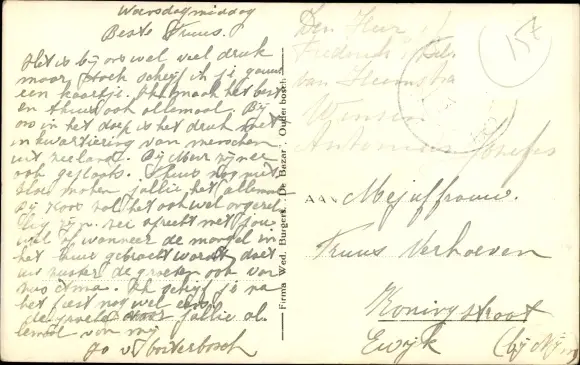 Woensdagmiddag
Beste Truus.
Het is bij ons wel veel druk
maar, toch schrijf ik je gauw
een kaartje. Ik maak het best
en thuis ook allemaal. Bij
ons in het dorp is het druk met
inkwartiering van menschen
uit zeeland. Bij Meur zijn er
ook geplaats. Thuis nog niet.
Hoe maken jullie het allemaal
Bij Koos zal het ook wel
zijn ze oprecht met jou
wel of wanneer de mangel in
het huis gebracht wordt doet
uw zuster de groeten ook van
Ik schrijf je na
het feest nog wel eens
de groeten jullie al
lemaal van mij
Jo v
Firma Wed. Burgers „De Bazar", Ouderbosch
Den Heer
Frederik
van Heemstra
Winsen
Antonius
15x
AAN Mejuffrouw.
Truus Verhoeven
Koningstraat
Ewijk (bij Nijm)